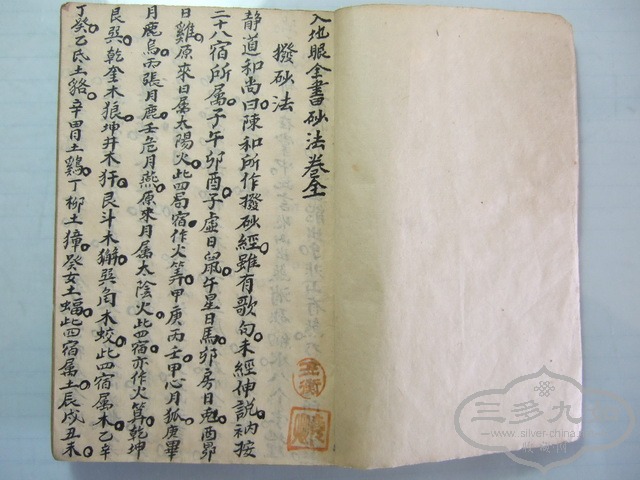 入地眼全書砂法卷全
撥砂法
静道和尚曰陳和所作撥砂經雖有歌句未經伸說衲按
二十八宿所属子午卯酉子虛日鼠午星日馬卯房日兎酉昴
日雞原來日属太陽火此四局宿作火筭甲庚丙壬甲心月狐庚畢
月鹿烏丙張月鹿壬危月燕原來月属太陰火此四宿亦作火算乾坤
艮巽乾奎木狼坤井木犴艮斗木獬巽角木蛟此四宿属木乙辛
丁癸乙氐土貉辛胃土鷄丁柳土獐癸女土蝠此四宿属土辰戌丑未
三多九
www.silver-china.com